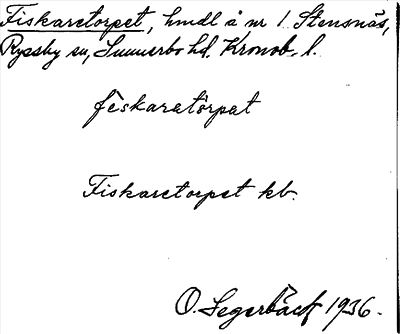 Fiskaretorpet, hmdl å nr 1 Stensnäs,
Ryssby sn, Sunnerbo hd. Kronob. l.
fèskaratòrpat
Fiskaretorpet kb.
O. Segerbäck 1936.